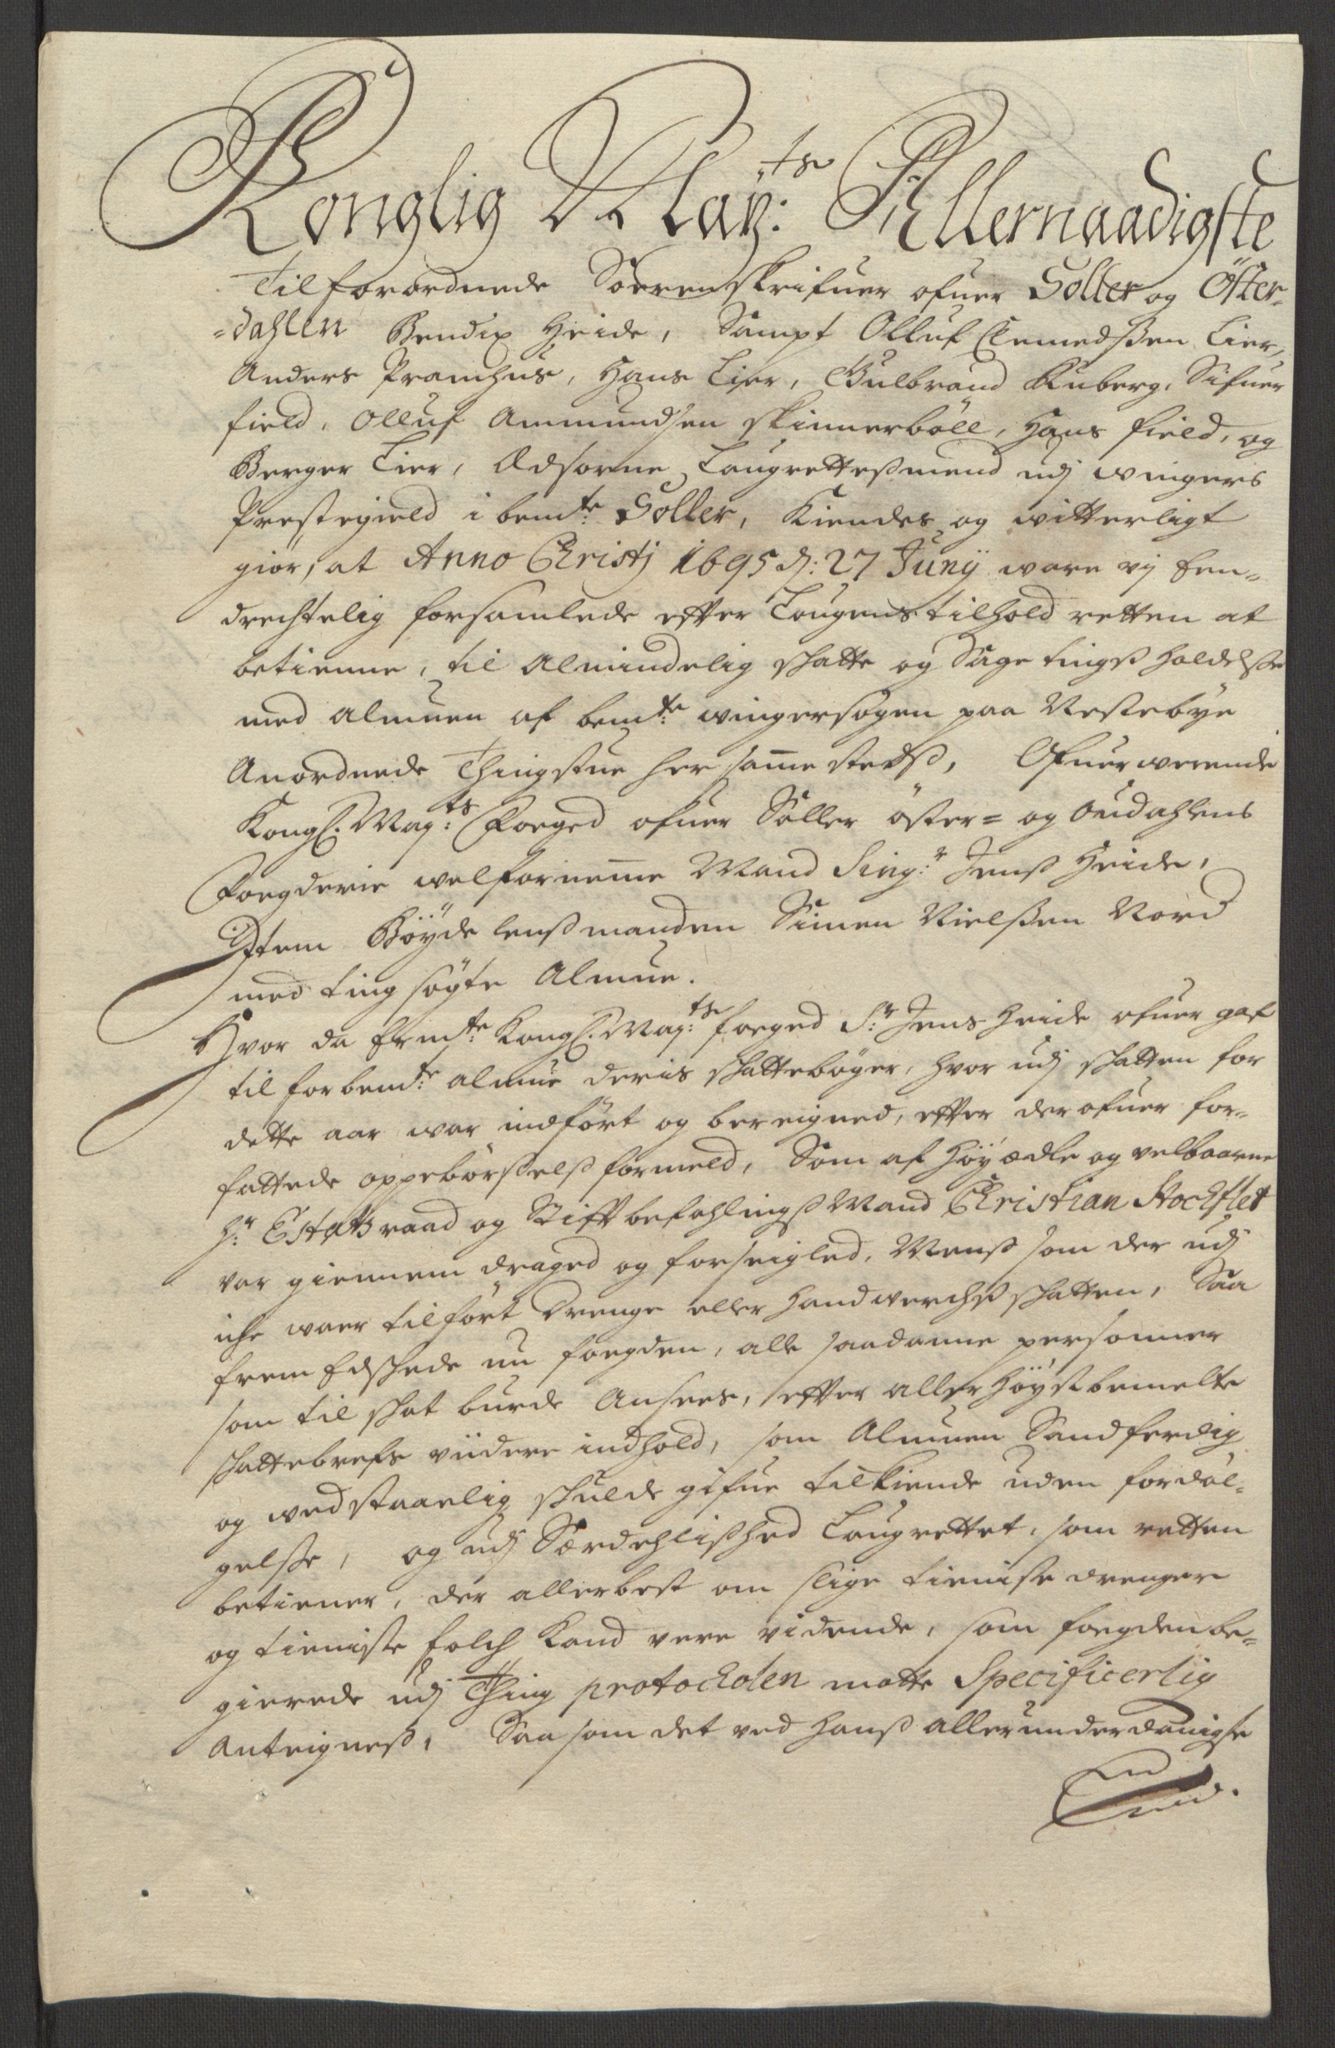 Konglig Maÿ:ts Allernaadigste
Tilforordnede Sorenskrifuer ofuer Soller og Öster-
=dahlen Bendix Heide, Sampt Olluf Clemedßen Lier,
Anders Pramhus, Hans Lier, Gulbrand Kuberg, Sifuer
field, Olluf Ammundsen Skinnerböll, Hans field, og
Berger Lier, Edsorne Laugretteßmend udj wingers
Prestegield i bemte: Soller, Kiendes og witterligt
giör, at Anno Christj 1695 d: 27 Junÿ ware vj Een-
drechtelig forsamlede efter Laugens tilhold retten at
betienne, til Almindelig skatte og Sage tingß holdelße
med almuen af bemte: wingersogen paa Nestebye
Anordnede Thingstue her samestedß, Ofuerwerende
Kongl: May:ts Foeged ofuer Söller öster= og Oudahlens
Foegderie welfornemme Mand Sing:r Jenß Heide,
Item Böÿde lenßmanden Simen Nielßen Nord
med ting søgte Almue.
Hvor da Ermte: Kongl: May:ts foeged Sr: Jens Heide ofuer gaf
til forbemte: almue deris skattebøger, hvor udj skatten for
dette aar war indfört og bereigned, efter derofuer for-
fattede oppebørßelß formeld, Som af Høÿædle og velbaarne
Hr: Estatzraad og Stifftbefahlingß Mand Christian Stochflet
var giennem draged og forseigled, Menß som der udj
iche waer tilfört Drenge eller Handwerchß skatten, Saa
frem Edskede nu foegden, alle saadanne personner
som til skat burde Ansees, efter allerhöÿstbemelte
skattebrefs viidere indhold, som Almuen Sandferdig
og wedstaaelig skulde gifue tilkiende uden fordøl-
gelse, og udj Særdehlißhed Laugrettet, som retten
betiener, der allerbest om slige tieniste drenger
og tieniste folch kand vere vidende, som foegden be-
gierede udj Thing protocholen motte Specificerlig
Anteigneß, Saa som det ved Hanß allerunderdanigste